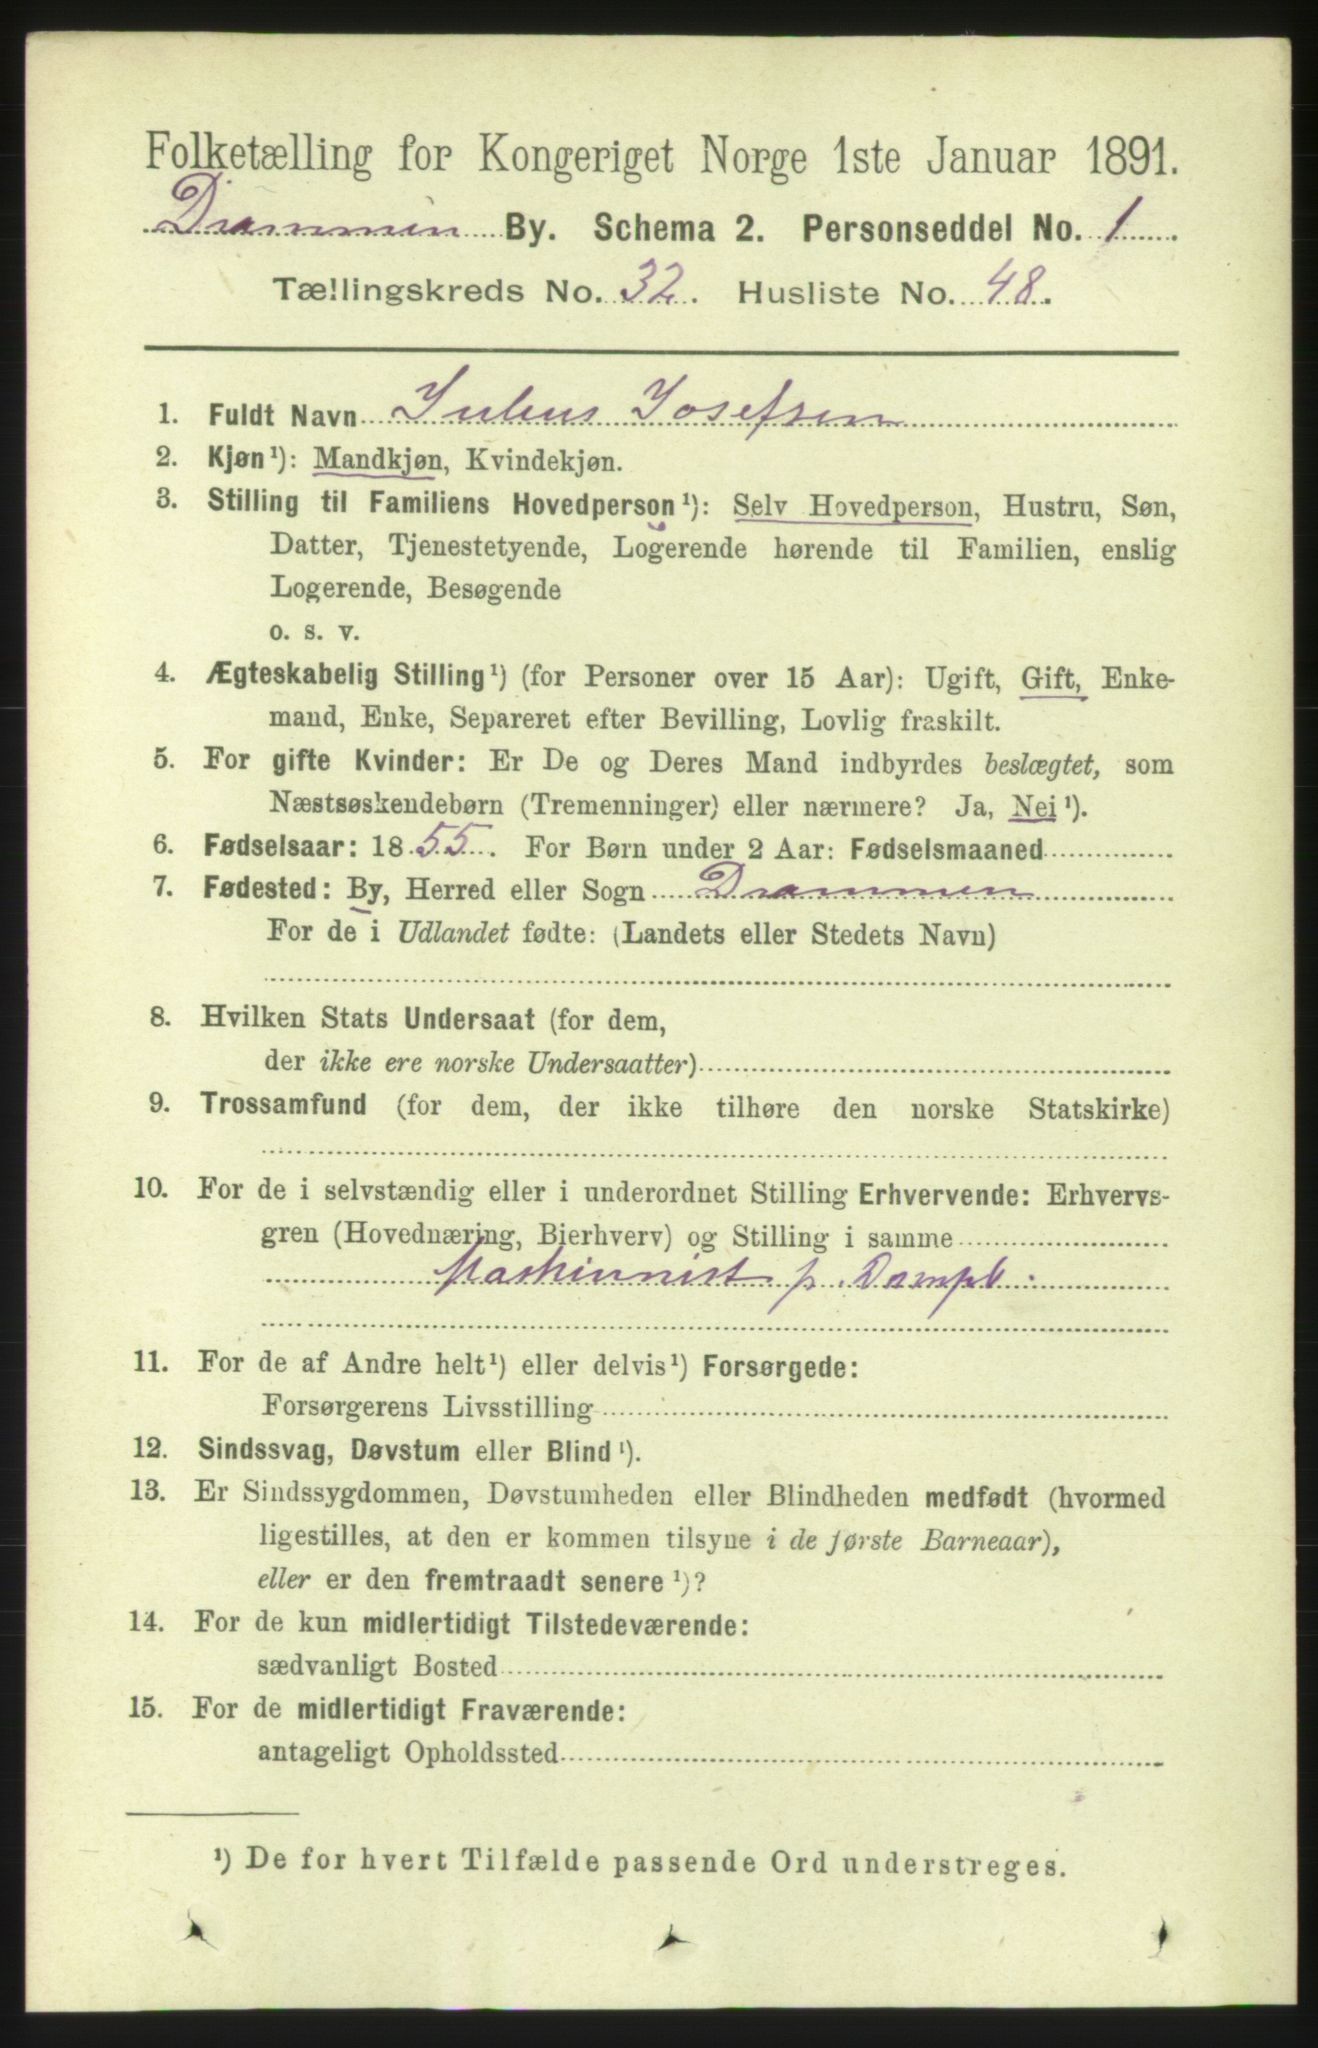 Folketælling for Kongeriget Norge 1ste Januar 1891.
Drammen By. Schema 2. Personseddel No. 1
Tællingskreds No. 32. Husliste No. 48.
1. Fuldt Navn Julius Josefsen
2. Kjøn¹): Mandkjøn, Kvindekjøn.
3. Stilling til Familiens Hovedperson¹): Selv Hovedperson, Hustru, Søn,
Datter, Tjenestetyende, Logerende hørende til Familien, enslig
Logerende, Besøgende
o. s. v.
4. Ægteskabelig Stilling¹) (for Personer over 15 Aar): Ugift, Gift, Enke-
mand, Enke, Separeret efter Bevilling, Lovlig fraskilt.
5. For gifte Kvinder: Er De og Deres Mand indbyrdes beslægtet, som
Næstsøskendebørn (Tremenninger) eller nærmere? Ja, Nei¹).
6. Fødselsaar: 1855. For Børn under 2 Aar: Fødselsmaaned
7. Fødested: By, Herred eller Sogn Drammen
For de i Udlandet fødte: (Landets eller Stedets Navn)
8. Hvilken Stats Undersaat (for dem,
der ikke ere norske Undersaatter)
9. Trossamfund (for dem, der ikke tilhøre den norske Statskirke)
10. For de i selvstændig eller i underordnet Stilling Erhvervende: Erhvervs-
gren (Hovednæring, Bierhverv) og Stilling i samme
Maskinnist p. Dampb.
11. For de af Andre helt¹) eller delvis¹) Forsørgede:
Forsørgerens Livsstilling
12. Sindssvag, Døvstum eller Blind¹).
13. Er Sindssygdommen, Døvstumheden eller Blindheden medfødt (hvormed
ligestilles, at den er kommen tilsyne i de første Barneaar),
eller er den fremtraadt senere¹)?
14. For de kun midlertidigt Tilstedeværende:
sædvanligt Bosted
15. For de midlertidigt Fraværende:
antageligt Opholdssted
¹) De for hvert Tilfælde passende Ord understreges.